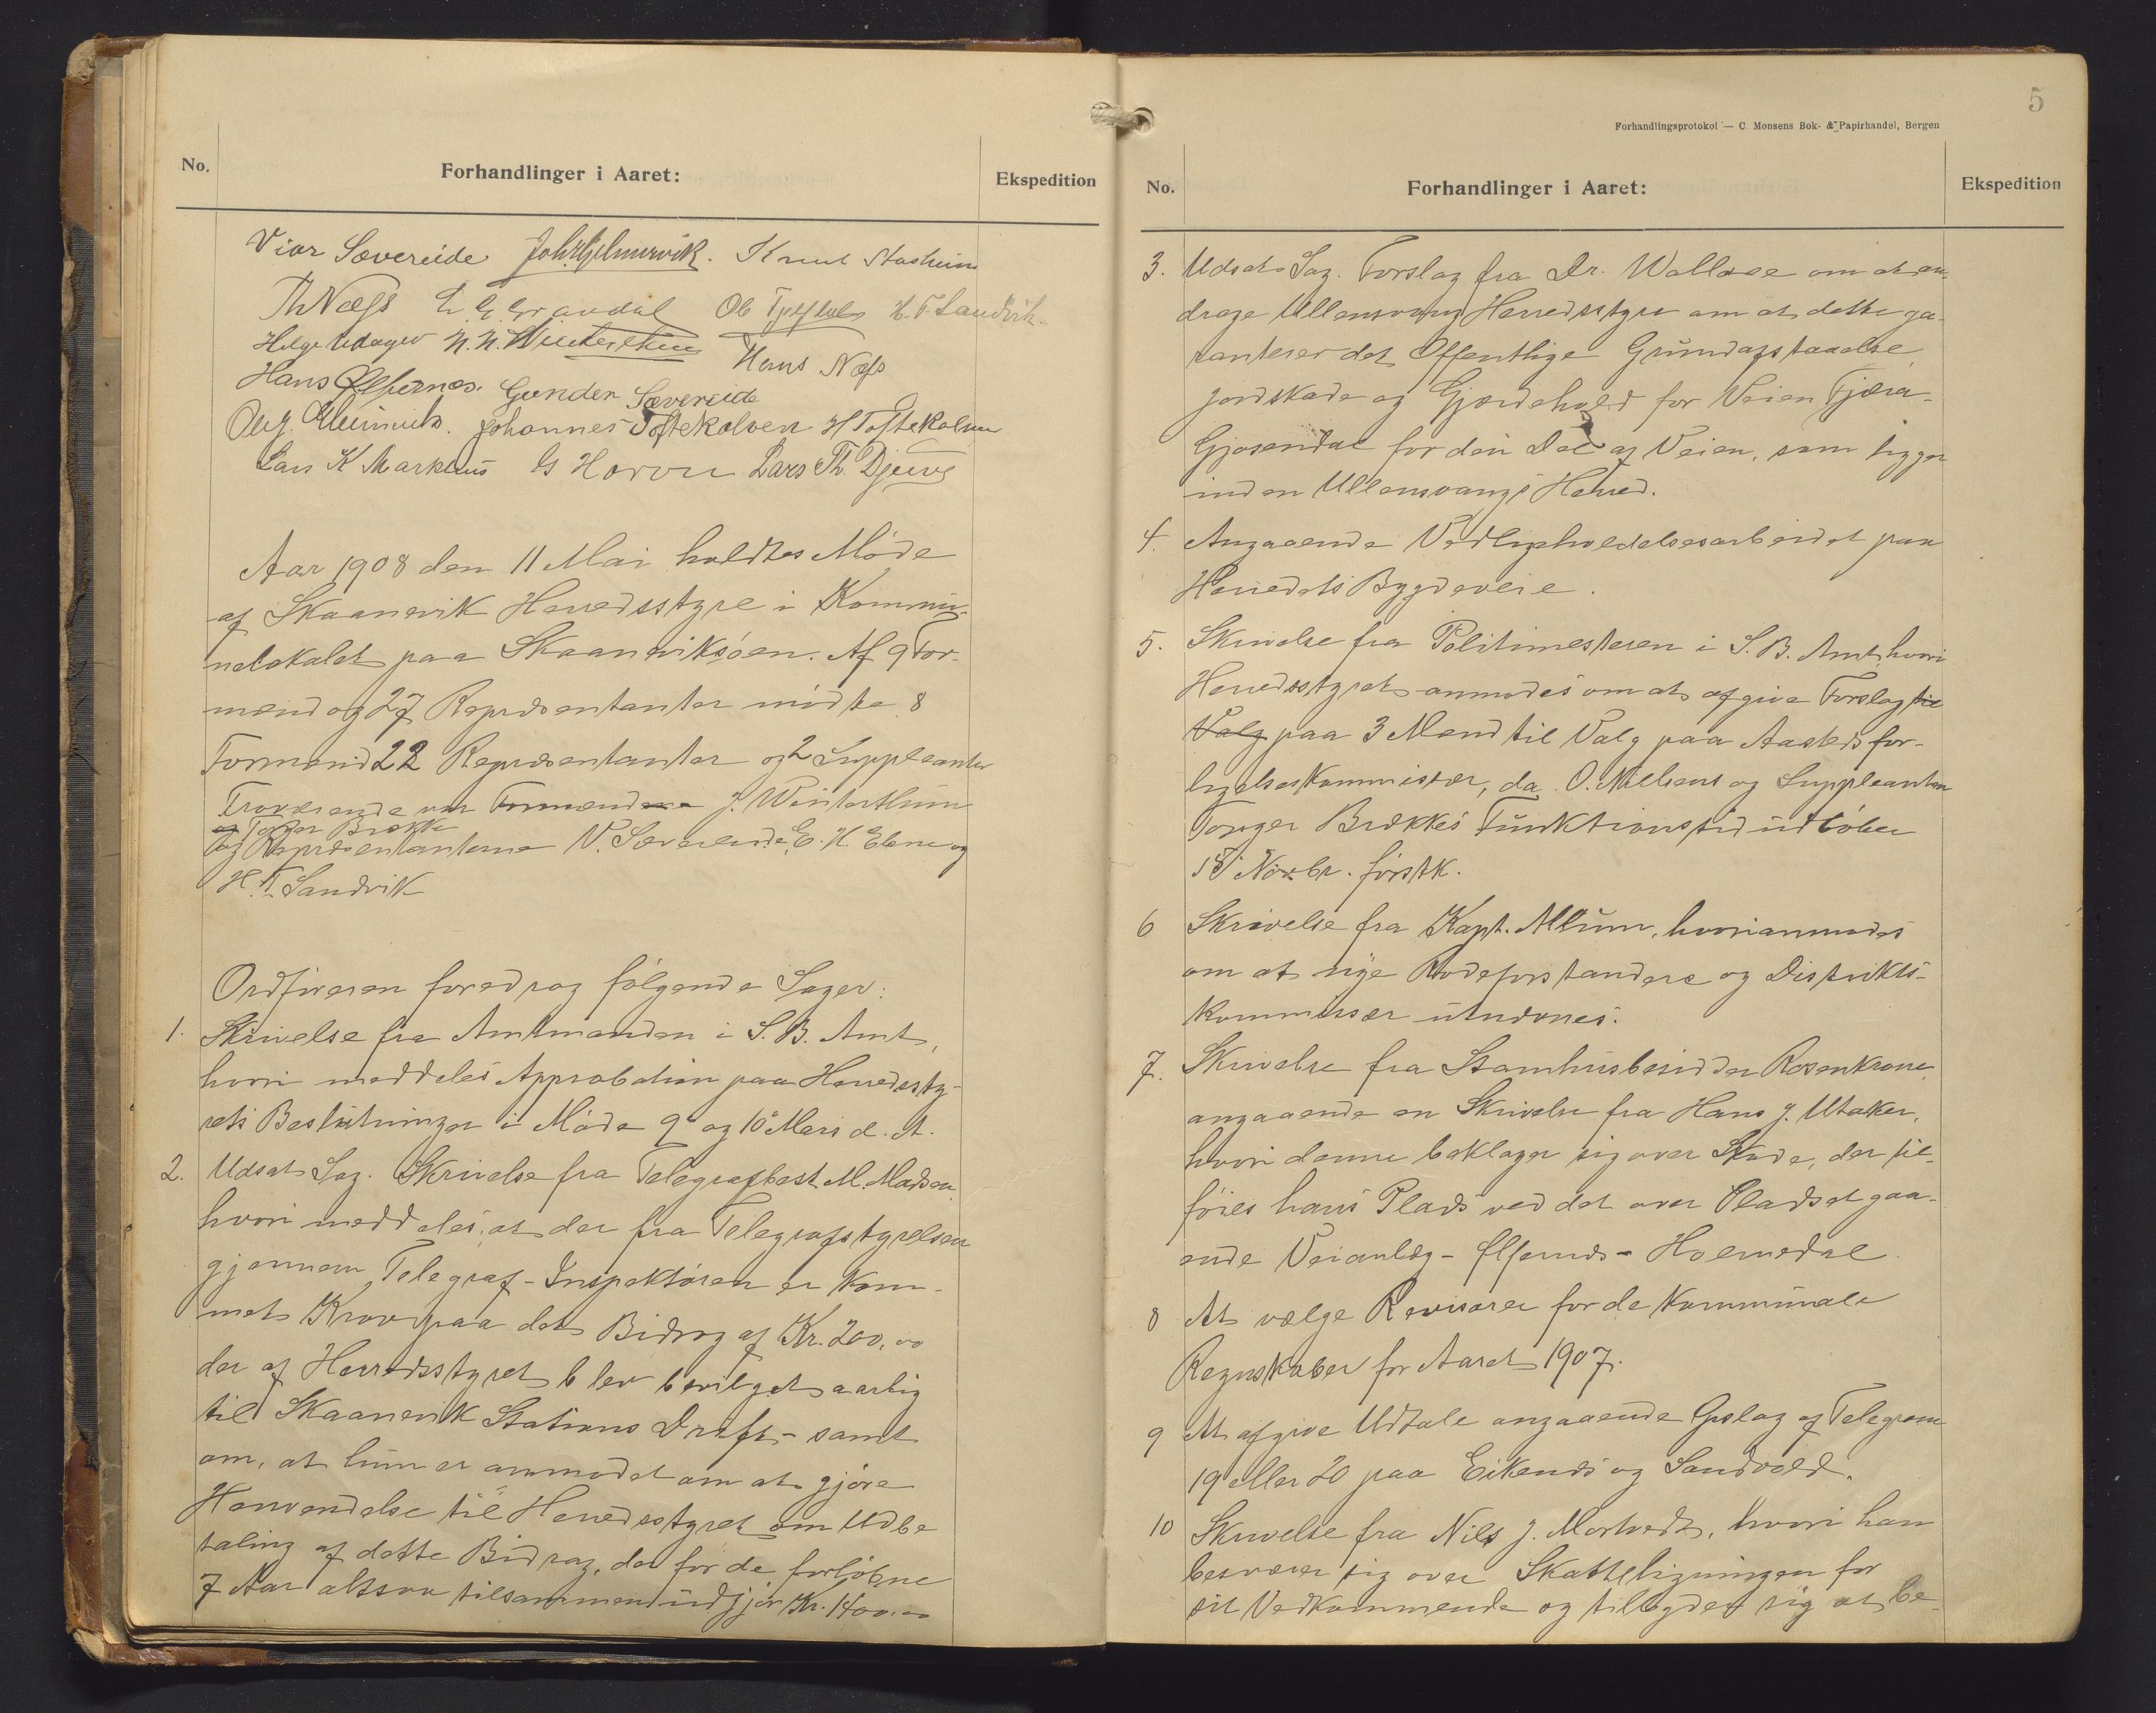 No.
Forhandlinger i Aaret:
Ekspedition
Viar Sævereide Knut Stasheim
Th Næss L. G. Gravdal H. T. Sandvik
Helge Utager N. N. Winterthun
Hans Næss
Hans Ølfernæs. Gunder Sævereide
Johannes Toftekalven H Toftekalven
Lars K Markhus Lars Th. Djuve
Aar 1908 den 11 Mai holdtes Møde
af Skaanevik Herredsstyre i Kommu-
nelokalet paa Skaaneviksøen. Af 9 For-
mænd og 27 Repræsentanter mødte 8
Formænd 22 Repræsentanter og 2 Suppleanter
Fraværende var Formændene J. Winterthun
og Torger Brække
og Repræsentanterne V. Sævereide, E. H. Ebne og
H. T. Sandvik
Ordføreren foredrog følgende Sager:
1. Skrivelse fra Amtmanden i S. B. Amt,
hvori meddeles Approbation paa Herredssty-
rets Beslutninger i Møde 9 og 10 Mars d. A.
2. Udsat Sag. Skrivelse fra Telegrafbest. M. Madsen
hvori meddeles, at der fra Telegrafstyrelsen
gjennem Telegraf-Inspektøren er kom-
met Krav paa det Bidrag af Kr. 200,00
der af Herredsstyret blev bevilget aarlig
til Skaanevik Stations Drift – samt
om, at hun er anmodet om at gjøre
Henvendelse til Herredsstyret om Udbe
taling af dette Bidrag, der for de forløbne
7 Aar altsaa tilsammen udgjør Kr. 1400.00
5
Forhandlingsprotokol — C. Monsens Bok- & Papirhandel, Bergen
No.
Forhandlinger i Aaret:
Ekspedition
3. Udsat Sag. Forslag fra Dr. Wallace om at an-
drage Ullensvang Herredsstyre om at dette ga-
ranterer det Offentlige Grundafstaaelse
jordskade og Gjærdehold for Veien Fjæra-
Gjøsendal for den Del af Veien, som ligger
inden Ullensvangs Herred.
4. Angaaende Vedligeholdelsesarbeidet paa
Herredets Bygdeveie.
5. Skrivelse fra Politimesteren i S. B. Amt, hvori
Herredsstyret anmodes om at afgive Forslag til
Valg paa 3 Mænd til Valg paa Aasteds for-
ligelseskommissær, da O. Nielsens og Suppleanten
Torger Brækkes Funktionstid udløber
18 Novbr. førstk.
6 Skrivelse fra Kapt. Allum, hvori anmodes
om at nye Rodeforstandere og Distrikts-
kommissær udnævnes.
7. Skrivelse fra Stamhusbesidder Rosenkrone,
angaaende en Skrivelse fra Hans J. Utaker,
hvori denne beklager sig over Skade, der til-
føies hans Plads ved det over Pladset gaa-
ende Veianlæg – Ølfernæs – Holmedal
8 At vælge Revisorer for de kommunale
Regnskaber for Aaret 1907.
9 At afgive Udtale angaaende Opslag af Telegram
19 eller 20 paa Eikenæs og Sandvold.
10 Skrivelse fra Nils J. Mortvedt, hvori han
besværer sig over Skatteligningen for
sit Vedkommende og tilbyder sig at be-